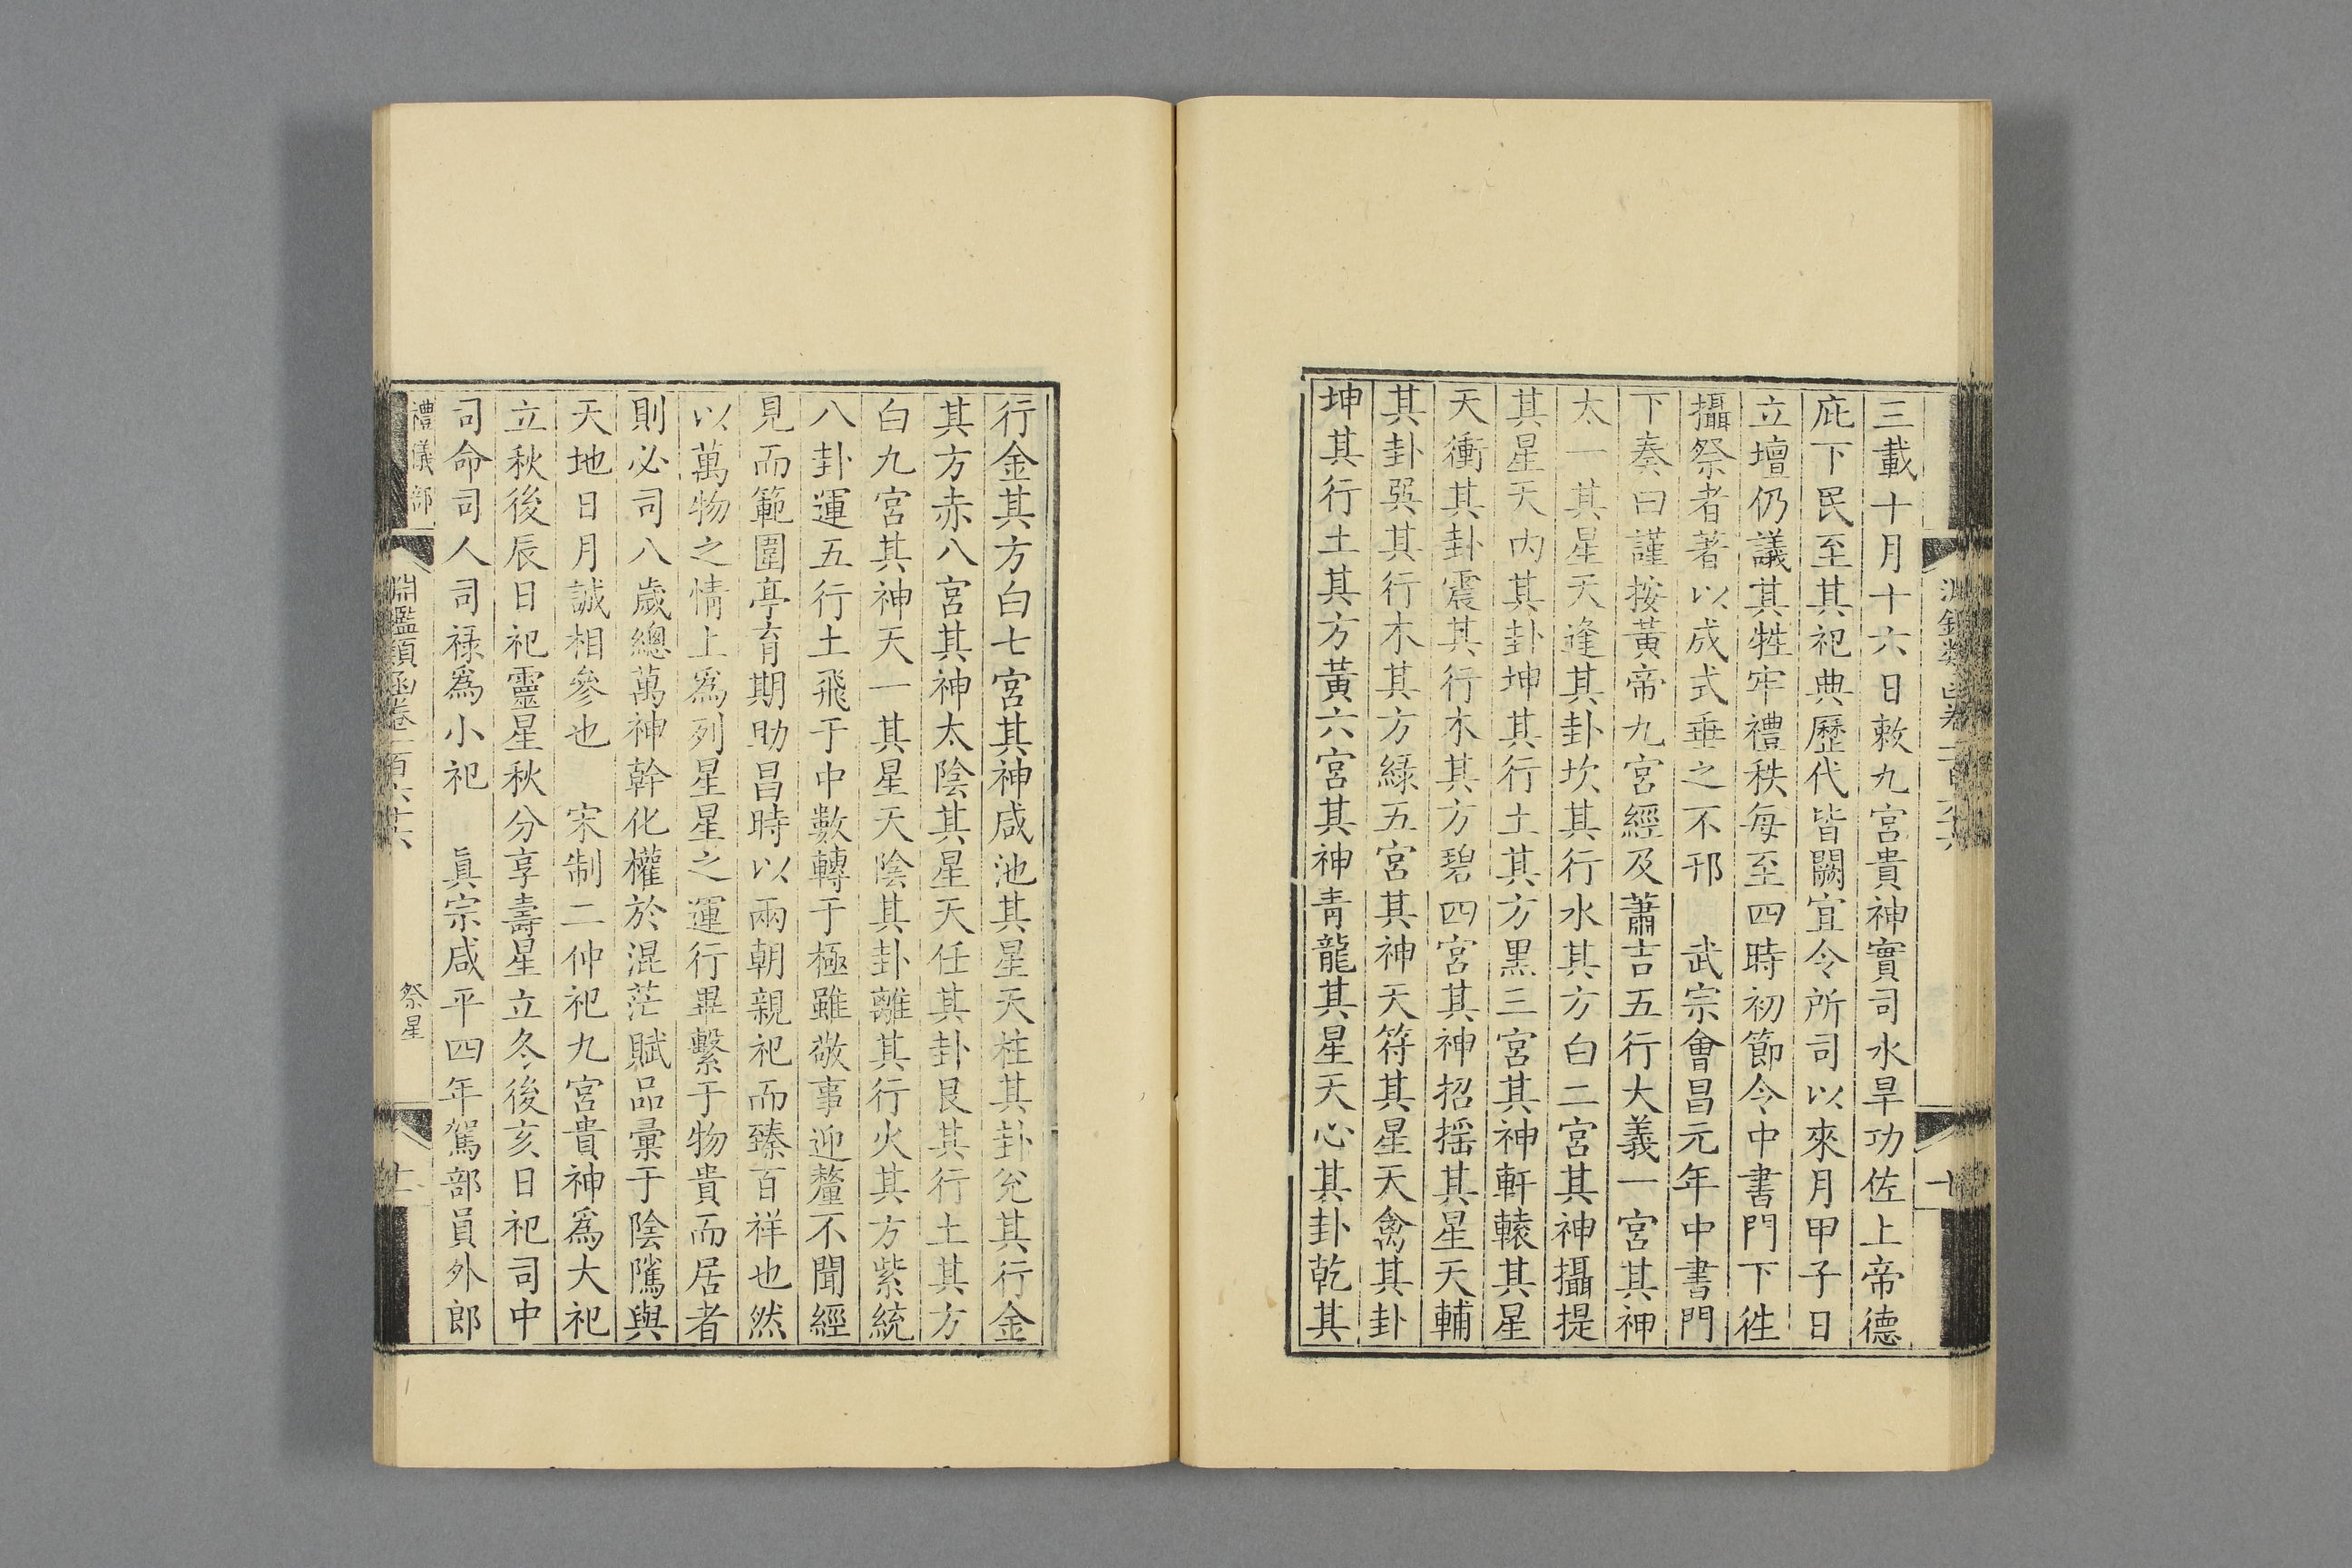 三載十月十六日敕九宮貴神實司水旱功佐上帝德
庇下民至其祀典歷代皆闕宜令所司以來月甲子日
立壇仍議其牲牢禮秩每至四時初節令中書門下徃
攝祭者著以成式垂之不刊　武宗會昌元年中書門
下奏曰謹按黃帝九宮經及蕭吉五行大義一宮其神
太一其星天逢其卦坎其行水其方白二宮其神攝提
其星天內其卦坤其行土其方黑三宮其神軒轅其星
天衝其卦震其行木其方碧四宮其神招搖其星天輔
其卦巽其行木其方綠五宮其神天符其星天禽其卦
坤其行土其方黃六宮其神靑龍其星天心其卦乾其
行金其方白七宮其神咸池其星天柱其卦兌其行金
其方赤八宮其神太陰其星天任其卦艮其行土其方
白九宮其神天一其星天陰其卦離其行火其方紫統
八卦運五行土飛于中數轉于極雖敬事迎釐不聞經
見而範圍亭育期助昌時以兩朝親祀而臻百祥也然
以萬物之情上爲列星星之運行畢繫于物貴而居者
則必司八歲總萬神幹化權於混茫賦品彙于陰隲與
天地日月誠相參也　宋制二仲祀九宮貴神爲大祀
立秋後辰日祀靈星秋分享壽星立冬後亥日祀司中
司命司人司祿爲小祀　眞宗咸平四年駕部員外郎
禮儀部
淵鑑類函卷一百六十六
祭星